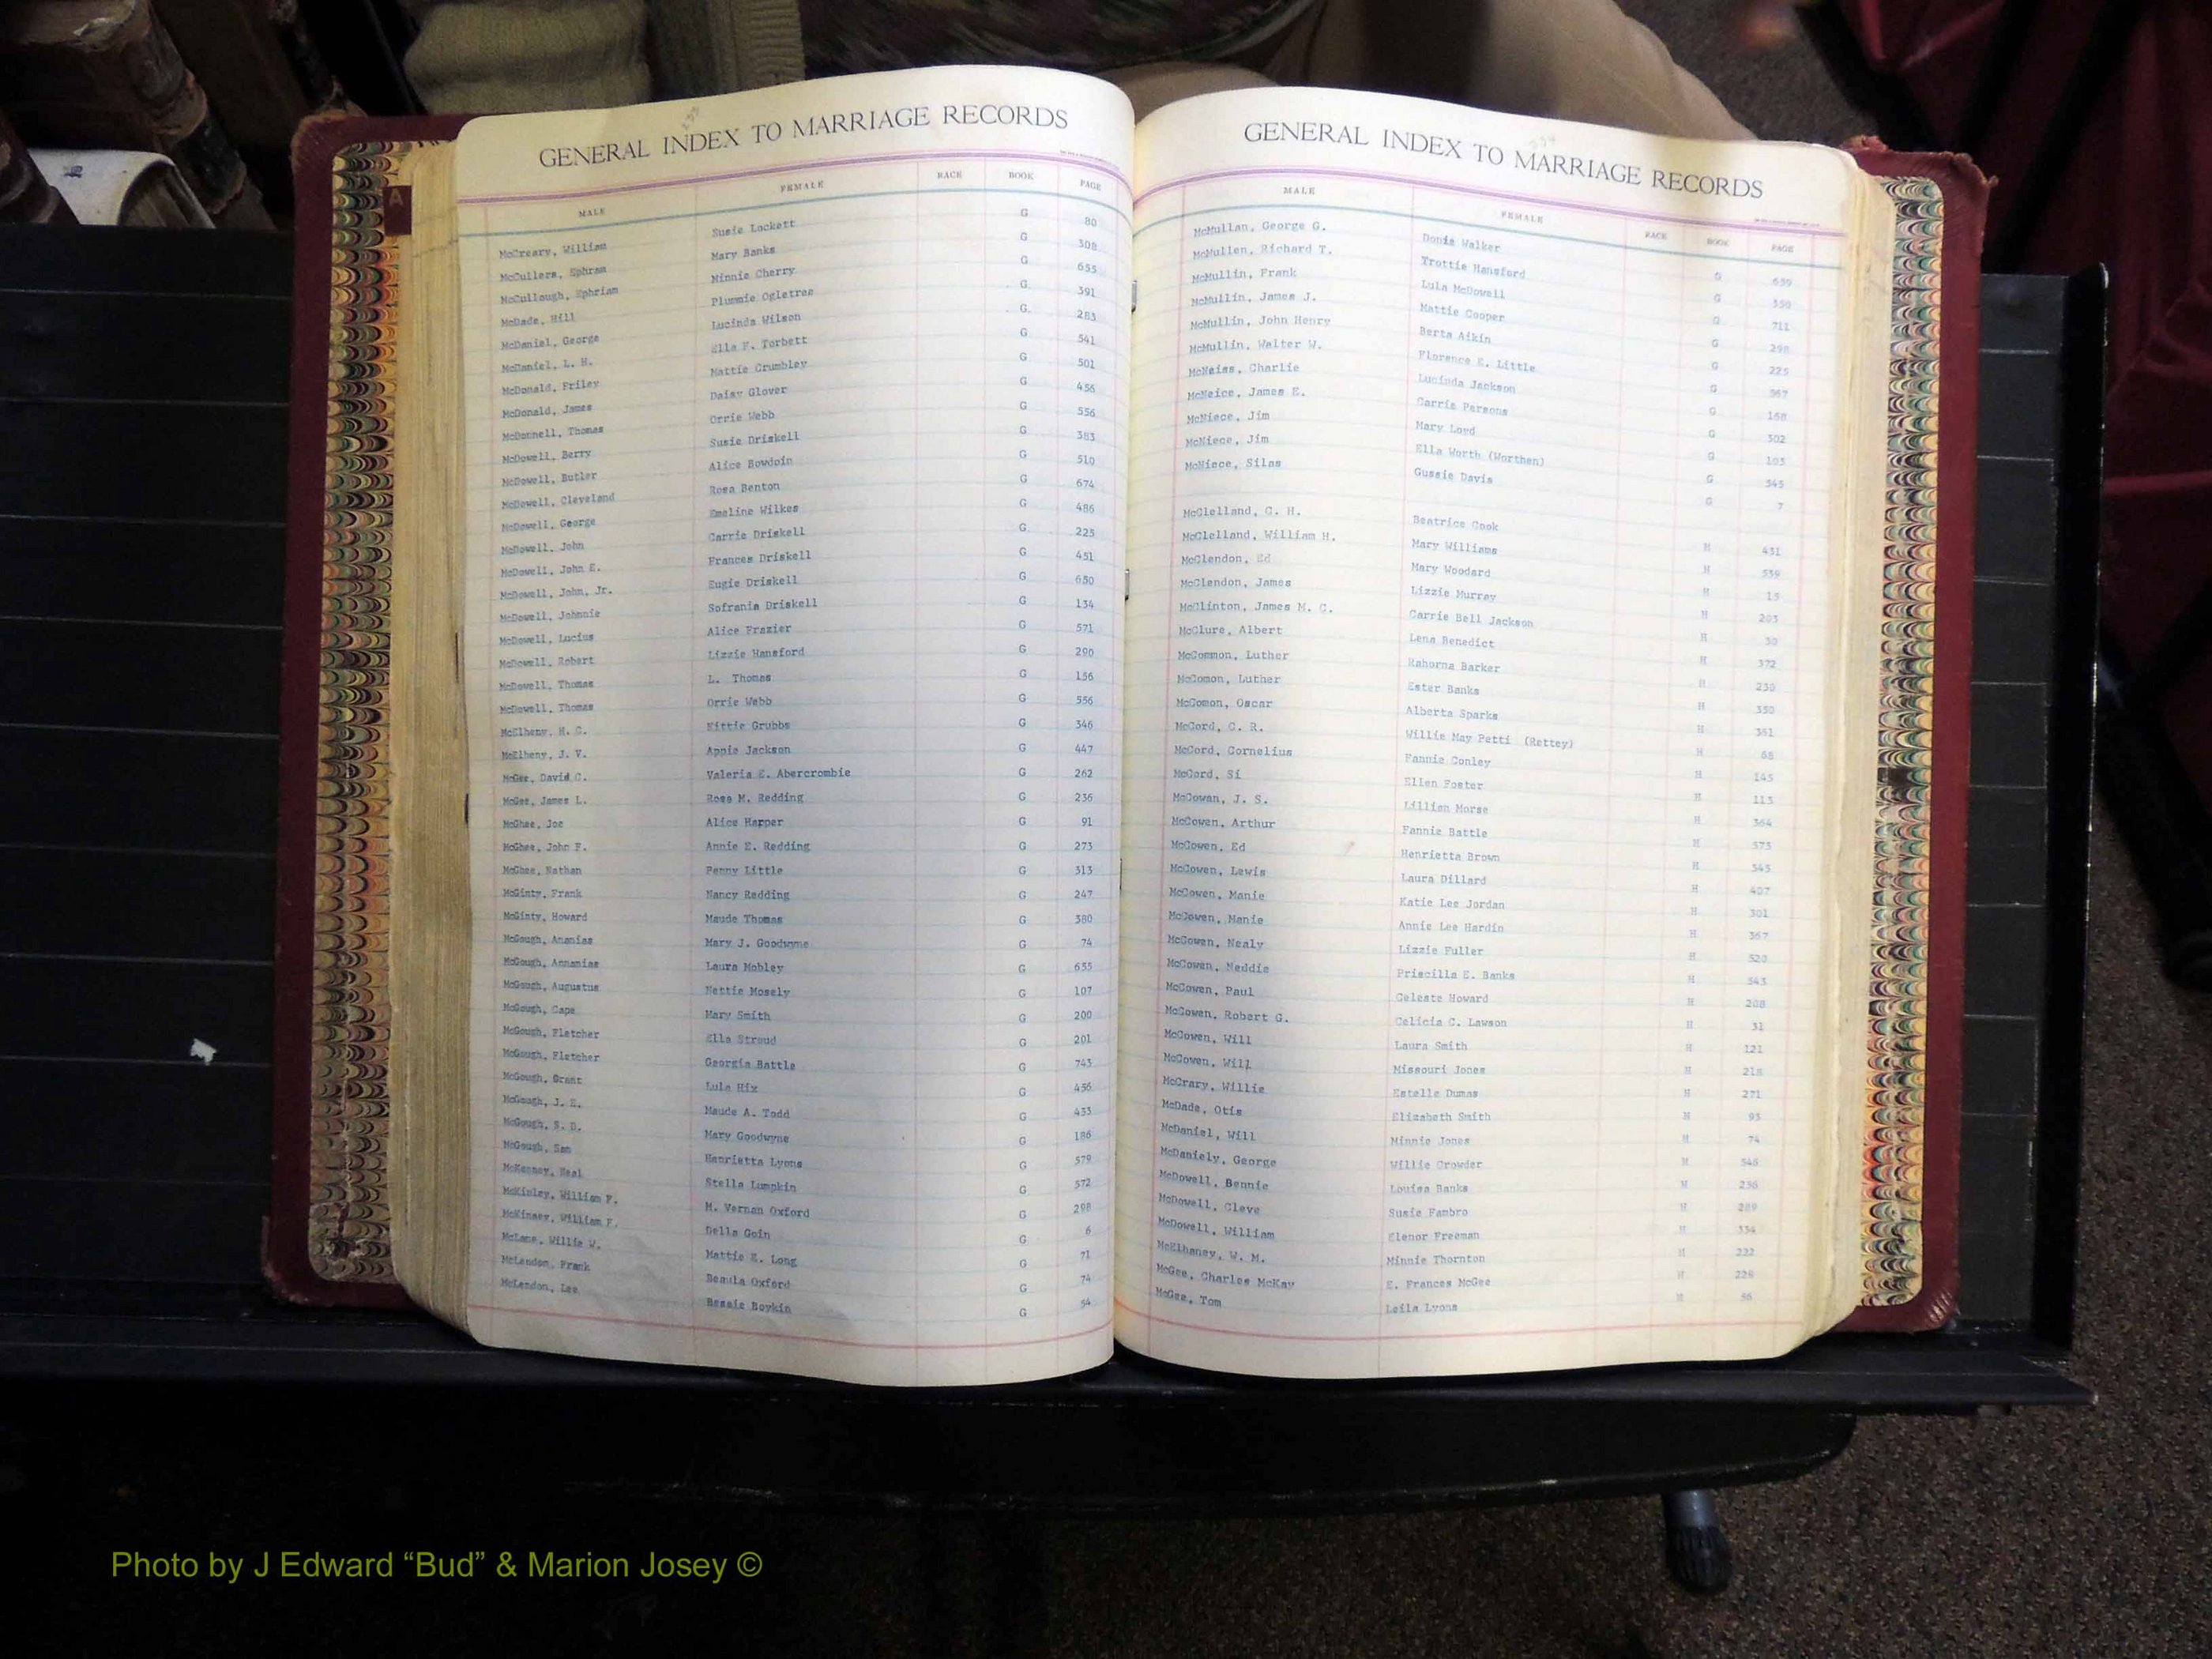 GENERAL INDEX TO MARRIAGE RECORDS
MALE FEMALE RACE BOOK PAGE
McCreary, William Susie Lockett G 80
McCullers, Ephram Mary Banks G 308
McCullough, Ephriam Minnie Cherry G 655
McDade, Bill Plummie Ogletree G 391
McDaniel, George Lucinda Wilson G 283
McDaniel, L. H. Ella F. Torbett G 541
McDonald, Friley Mattie Crumbley G 501
McDonald, James Daisy Glover G 456
McDonnell, Thomas Orrie Webb G 556
McDowell, Berry Susie Driskell G 383
McDowell, Butler Alice Bowdoin G 510
McDowell, Cleveland Rosa Benton G 674
McDowell, George Emeline Wilkes G 486
McDowell, John Carrie Driskell G 225
McDowell, John E. Frances Driskell G 451
McDowell, John, Jr. Eugie Driskell G 650
McDowell, Johnnie Sofrania Driskell G 134
McDowell, Lucius Alice Frazier G 571
McDowell, Robert Lizzie Hansford G 290
McDowell, Thomas L. Thomas G 156
McDowell, Thomas Orrie Webb G 556
McElheny, H. C. Kittie Grubbs G 346
McElheny, J. V. Annie Jackson G 447
McGee, David C. Valeria E. Abercrombie G 262
McGee, James L. Rosa M. Redding G 236
McGhee, Joe Alice Harper G 91
McGhee, John F. Annie E. Redding G 273
McGhee, Nathan Penny Little G 313
McGinty, Frank Nancy Redding G 247
McGinty, Howard Maude Thomas G 380
McGough, Ananias Mary J. Goodwyne G 74
McGough, Annanias Laura Mobley G 655
McGough, Augustus Nettie Mosely G 107
McGough, Cape Mary Smith G 200
McGough, Fletcher Ella Stroud G 201
McGough, Fletcher Georgia Battle G 743
McGough, Grant Lula Hix G 456
McGough, J. E. Maude A. Todd G 433
McGough, S. D. Mary Goodwyne G 186
McGough, Sam Henrietta Lyons G 579
McKenney, Neal Stella Lumpkin G 572
McKinley, William F. M. Vernan Oxford G 298
McKinsey, William F. Della Goin G 6
McLane, Willie W. Mattie E. Long G 71
McLendon, Frank Beaula Oxford G 74
McLendon, Lee Bessie Boykin G 54
GENERAL INDEX TO MARRIAGE RECORDS
MALE FEMALE RACE BOOK PAGE
McMullan, George G. Donie Walker G 659
McMullen, Richard T. Trottie Hansford G 350
McMullin, Frank Lula McDowell G 711
McMullin, James J. Mattie Cooper G 298
McMullin, John Henry Berta Aikin G 225
McMullin, Walter W. Florence E. Little G 567
McNeiss, Charlie Lucinda Jackson G 168
McNeice, James E. Carrie Persons G 302
McNiece, Jim Mary Loyd G 103
McNiece, Jim Ella Worth (Worthen) G 345
McNiece, Silas Gussie Davis G 7
McClelland, C. H. Beatrice Cook H 431
McClelland, William H. Mary Williams H 539
McClendon, Ed Mary Woodard H 15
McClendon, James Lizzie Murray H 203
McClinton, James M. C. Carrie Bell Jackson H 30
McClure, Albert Lena Benedict H 372
McCommon, Luther Rahorna Barker H 230
McComon, Luther Ester Banks H 350
McComon, Oscar Alberta Sparks H 361
McCord, C. R. Willie May Petti (Rettey) H 68
McCord, Cornelius Fannie Conley H 145
McCord, Si Ellen Foster H 113
McCowan, J. S. Lillian Morse H 364
McCowen, Arthur Fannie Battle H 373
McCowen, Ed Henrietta Brown H 345
McCowen, Lewis Laura Dillard H 407
McCowen, Manie Katie Lee Jordan H 301
McCowen, Manie Annie Lee Hardin H 367
McCowen, Nealy Lizzie Fuller H 520
McCowen, Neddie Priscilla E. Banks H 543
McCowen, Paul Celeste Howard H 208
McCowen, Robert G. Celicia C. Lawson H 31
McCowen, Will Laura Smith H 121
McCowen, Will Missouri Jones H 218
McCrary, Willie Estelle Dumas H 271
McDade, Otis Elizabeth Smith H 93
McDaniel, Will Minnie Jones H 74
McDaniely, George Willie Crowder H 346
McDowell, Bennie Louisa Banks H 256
McDowell, Cleve Susie Fambro H 289
McDowell, William Elenor Freeman H 334
McElhaney, W. M. Minnie Thornton H 222
McGee, Charles McKay E. Frances McGee H 228
McGee, Tom Leila Lyons H 56
Photo by J Edward “Bud” & Marion Josey ©